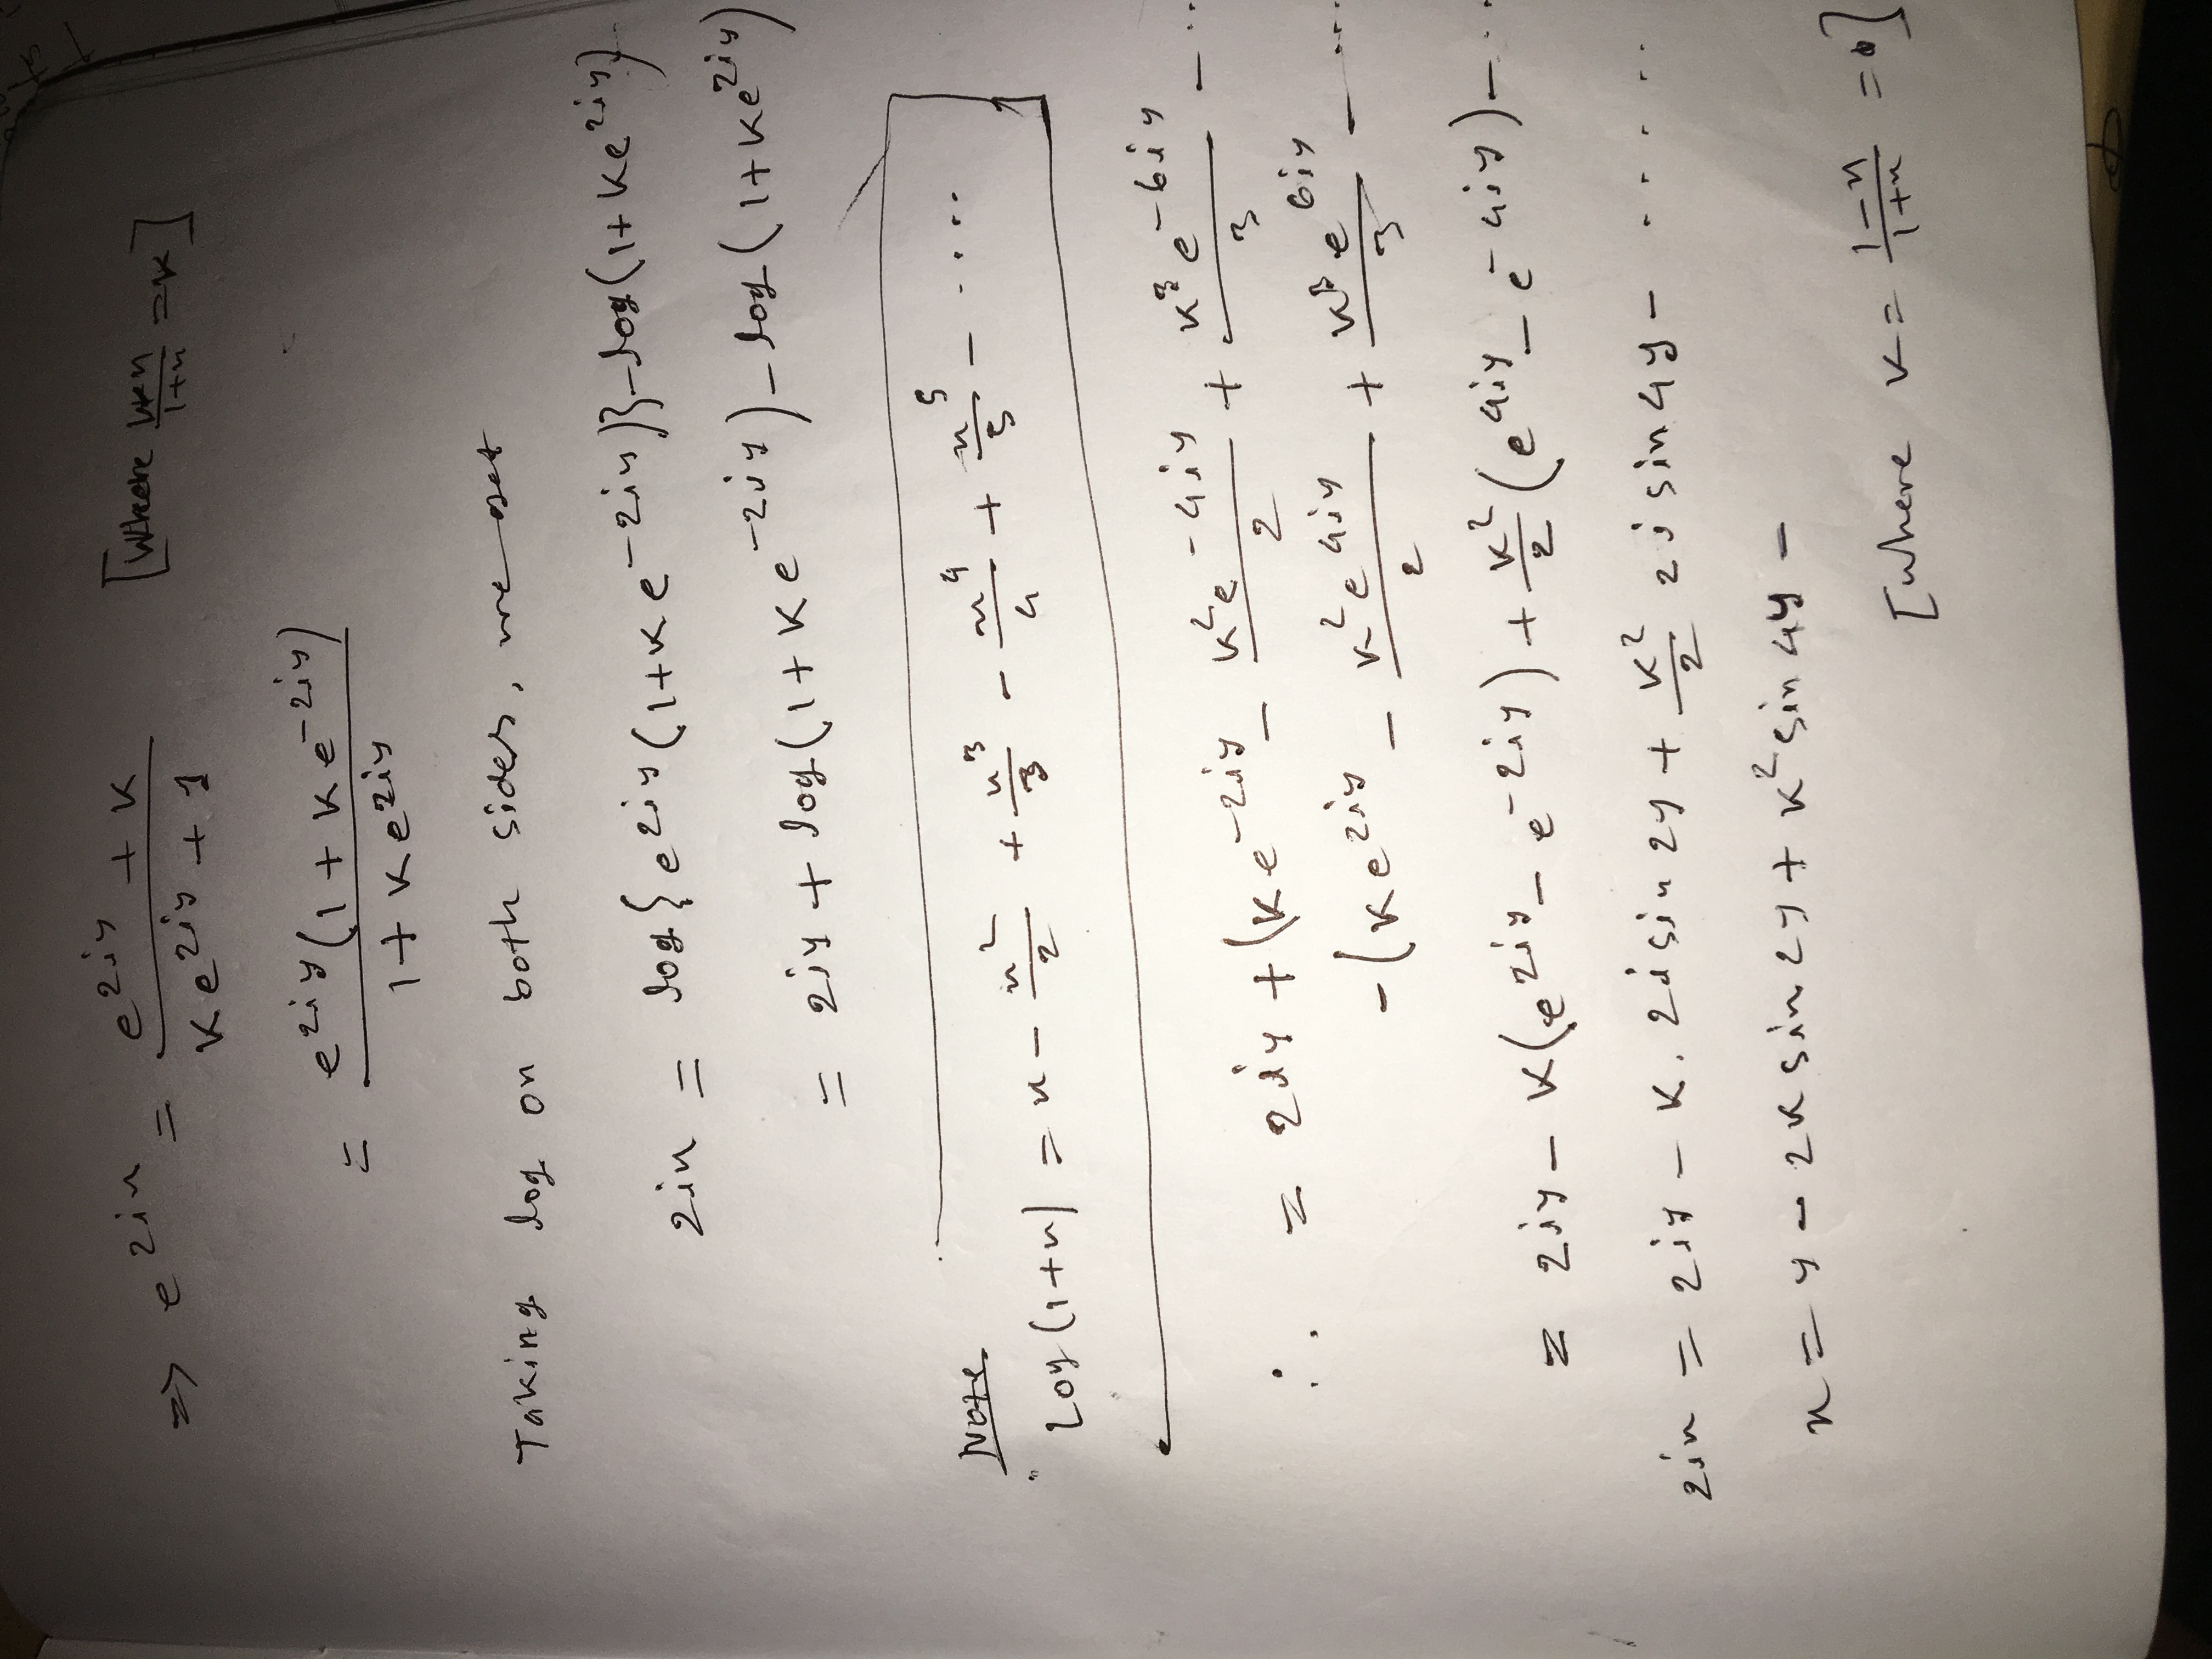 => e^{2ix} = \frac{e^{2iy} + K}{Ke^{2iy} + 1} [Where \frac{n}{1+n} = K]
= \frac{e^{2iy}(1 + Ke^{-2iy})}{1 + Ke^{2iy}}
Taking log on both sides, we get
2ix = log{e^{2iy}(1+Ke^{-2iy})} - log(1+Ke^{2iy})
= 2iy + log(1+Ke^{-2iy}) - log(1+Ke^{2iy})
Note
Log(1+x) = x - \frac{x^2}{2} + \frac{x^3}{3} - \frac{x^4}{4} + \frac{x^5}{5} - .....
∴ = 2iy + (Ke^{-2iy} - \frac{K^2e^{-4iy}}{2} + \frac{K^3e^{-6iy}}{3} - ..
-(Ke^{2iy} - \frac{K^2e^{4iy}}{2} + \frac{K^3e^{6iy}}{3} - ...
= 2iy - K(e^{2iy} - e^{-2iy}) + \frac{K^2}{2}(e^{4iy} - e^{-4iy}) - ..
2ix = 2iy - K. 2i sin 2y + \frac{K^2}{2} 2i sin 4y - ......
x = y - 2K sin 2y + K^2 sin 4y -
[where K = \frac{1-n}{1+n} = ]